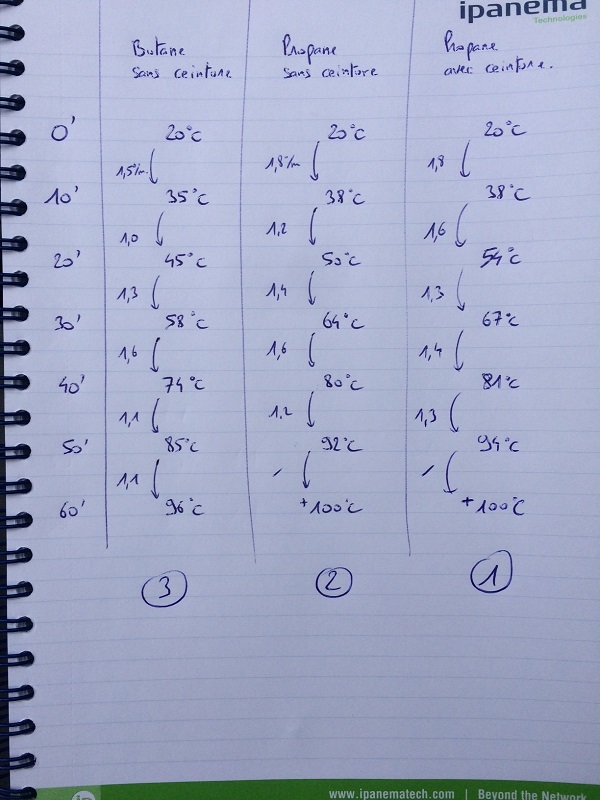 ipanema
Technologies
Butane
sans ceinture
Propane
sans ceinture
Propane
avec ceinture.
0' 20°C 20°C 20°C
1,5°/m 1,8°/m 1,8
10' 35°C 38°C 38°C
1,0 1,2 1,6
20' 45°C 50°C 54°C
1,3 1,4 1,3
30' 58°C 64°C 67°C
1,6 1,6 1,4
40' 74°C 80°C 81°C
1,1 1.2 1,3
50' 85°C 92°C 94°C
1,1 / /
60' 96°C +100°C +100°C
3 2 1
www.ipanematech.com | Beyond the Network